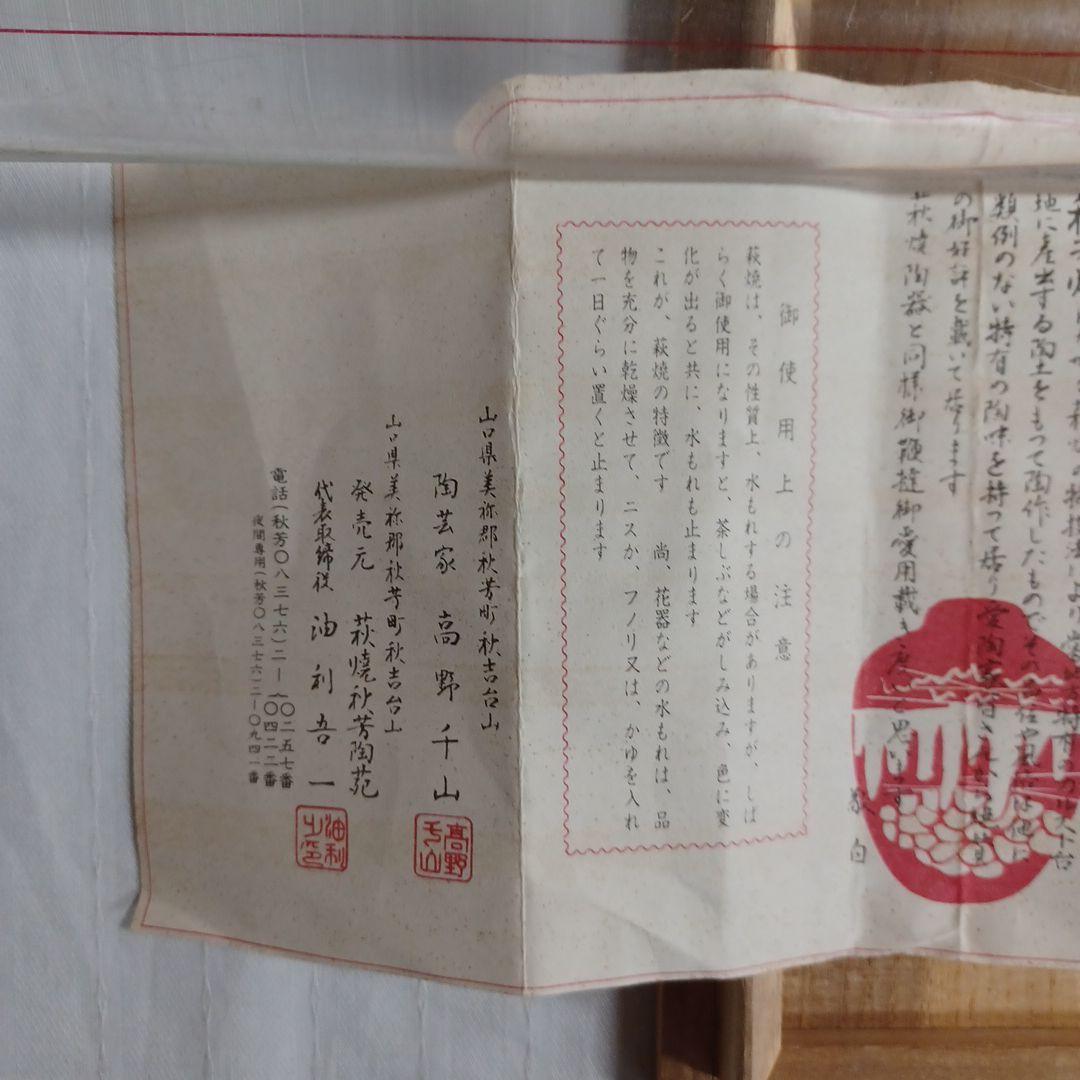 地に産出する陶土をもつて陶作したもので
類例のない特有の陶味を持つて居り
の御好評を戴いて居ります
萩焼陶器と同様御鞭撻御愛用戴き度いと思います
敬白
御使用上の注意
萩焼は、その性質上、水もれする場合がありますが、しば
らく御使用になりますと、茶しぶなどがしみ込み、色に変
化が出ると共に、水もれも止まります
これが、萩焼の特徴です　尚、花器などの水もれは、品
物を充分に乾燥させて、ニスか、フノリ又は、かゆを入れ
て一日ぐらい置くと止まります
山口県美祢郡秋芳町秋吉台山
陶芸家　高野千山
高野千山
山口県美祢郡秋芳町秋吉台山
発売元　萩焼秋芳陶苑
代表取締役　油利吾一
油利之印
電話(秋芳〇八三七六)二―〇二五七番
〇四二二番
夜間専用(秋芳〇八三七六)二―〇九四一番